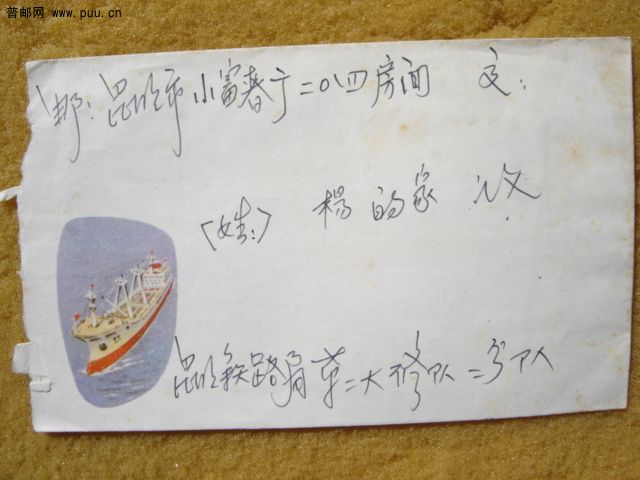 普邮网 www.puu.cn
邮:昆明市小富春广二〇四房间 交:
〈姓:〉 杨的家 收
昆明铁路局第二大修队二分队